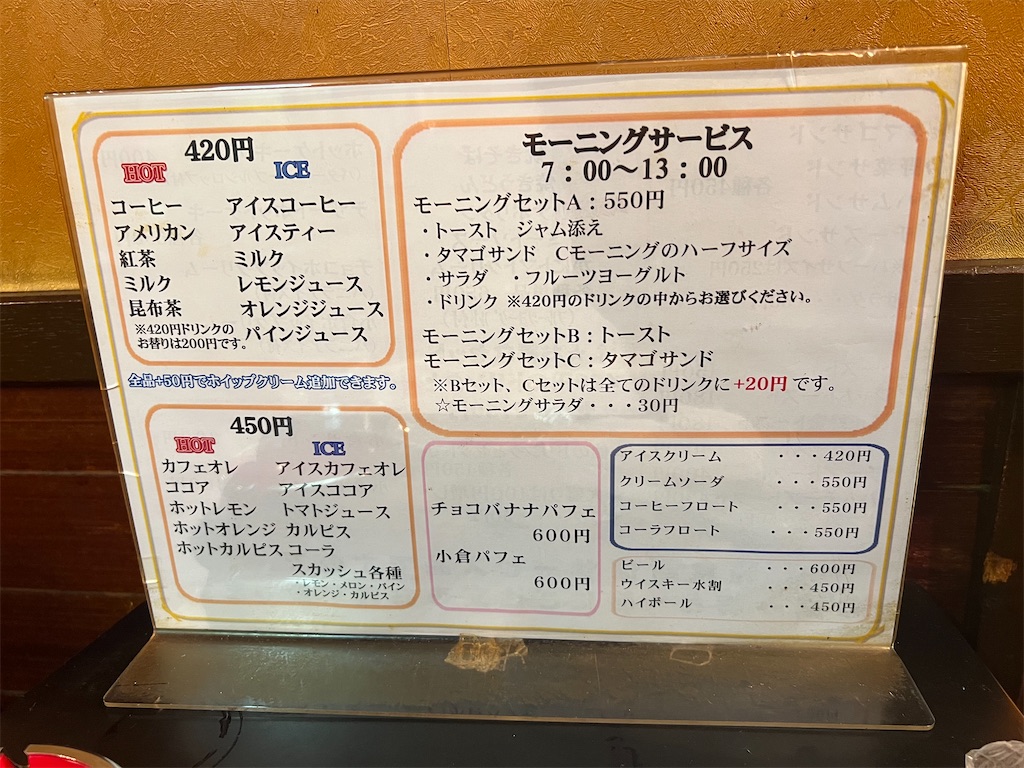 420円
HOT ICE
コーヒー アイスコーヒー
アメリカン アイスティー
紅茶 ミルク
ミルク レモンジュース
昆布茶 オレンジジュース
※420円ドリンクの
お替りは200円です。 パインジュース
全品+50円でホイップクリーム追加できます。
450円
HOT ICE
カフェオレ アイスカフェオレ
ココア アイスココア
ホットレモン トマトジュース
ホットオレンジ カルピス
ホットカルピス コーラ
スカッシュ各種
・レモン・メロン・パイン
・オレンジ・カルピス
モーニングサービス
7:00〜13:00
モーニングセットA:550円
・トースト ジャム添え
・タマゴサンド Cモーニングのハーフサイズ
・サラダ ・フルーツヨーグルト
・ドリンク ※420円のドリンクの中からお選びください。
モーニングセットB:トースト
モーニングセットC:タマゴサンド
※Bセット、Cセットは全てのドリンクに+20円です。
☆モーニングサラダ・・・30円
チョコバナナパフェ
600円
小倉パフェ
600円
アイスクリーム ・・・420円
クリームソーダ ・・・550円
コーヒーフロート ・・・550円
コーラフロート ・・・550円
ビール ・・・600円
ウイスキー水割 ・・・450円
ハイボール ・・・450円